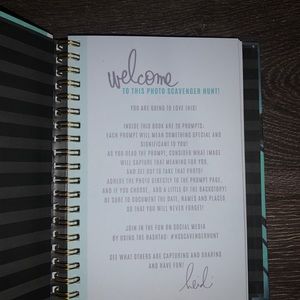 welcome
TO THIS PHOTO SCAVENGER HUNT!
YOU ARE GOING TO LOVE THIS!
INSIDE THIS BOOK ARE 28 PROMPTS.
EACH PROMPT WILL MEAN SOMETHING SPECIAL AND
SIGNIFICANT TO YOU!
AS YOU READ THE PROMPT, CONSIDER WHAT IMAGE
WILL CAPTURE THAT MEANING FOR YOU,
AND SET OUT TO TAKE THAT PHOTO!
ADHERE THE PHOTO DIRECTLY TO THE PROMPT PAGE,
AND IF YOU CHOOSE, ADD A LITTLE OF THE BACKSTORY!
BE SURE TO DOCUMENT THE DATE, NAMES AND PLACES
SO THAT YOU WILL NEVER FORGET!
JOIN IN THE FUN ON SOCIAL MEDIA
BY USING THE HASHTAG: #HSSCAVENGERHUNT
SEE WHAT OTHERS ARE CAPTURING AND SHARING
AND HAVE FUN!
heidi